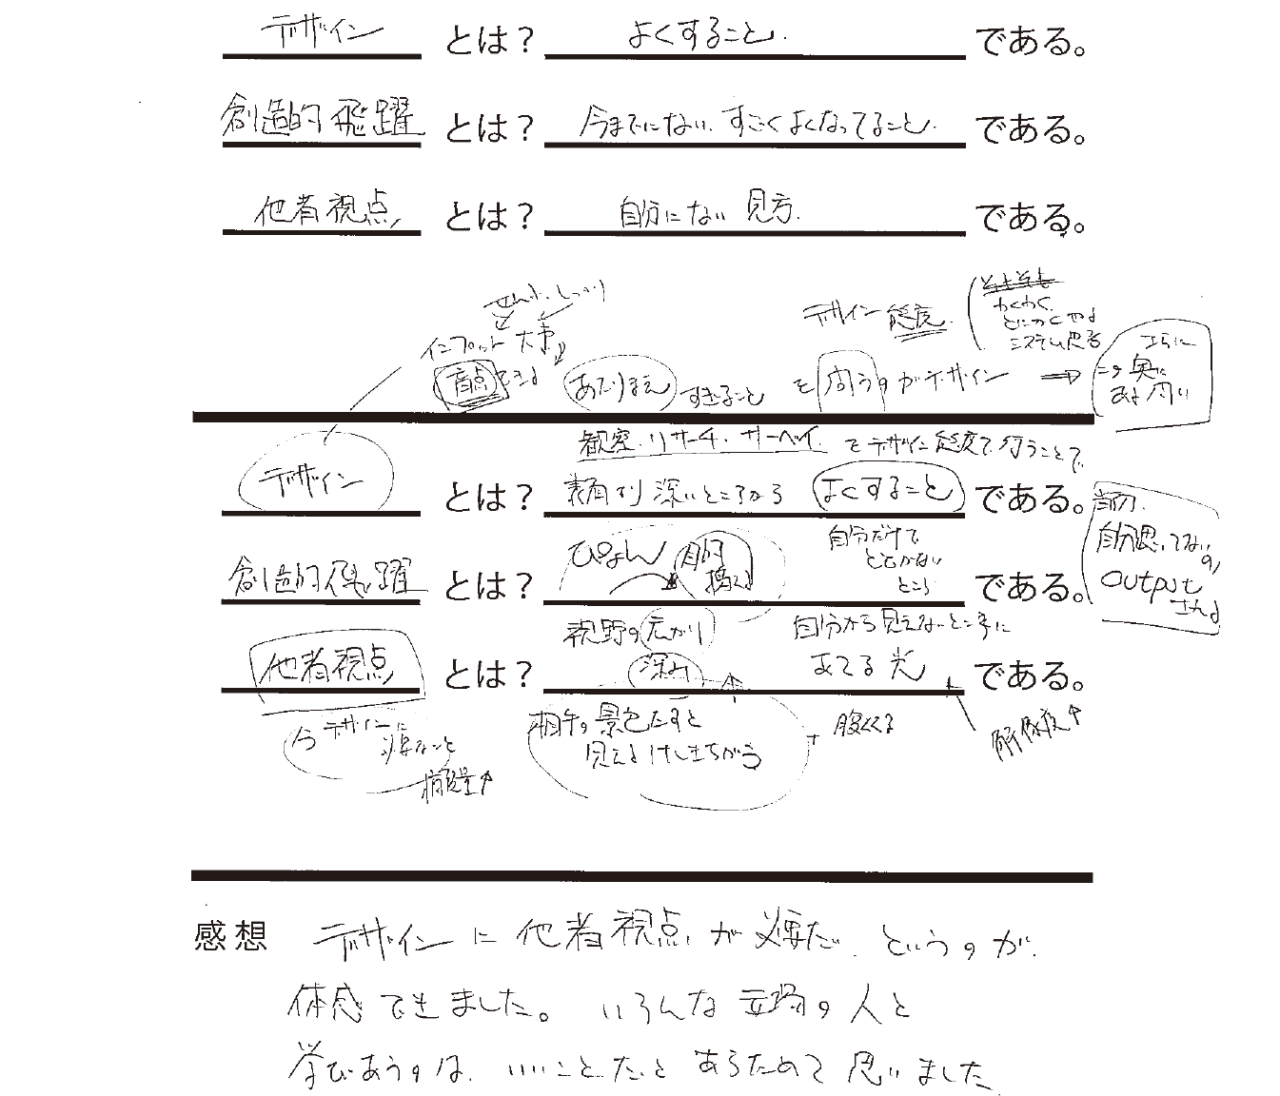 デザイン とは? よくすること. である。
創造的飛躍 とは? 今までにない、すごくよくなってること. である。
他者視点 とは? 自分にない 見方. である。
デザイン 態度.
わくわく、
とにかくやる
システム思考
インプット 大事
盲点できる
あたりまえ すぎること を 問うのがデザイン ⇒
さらに
この奥に
ある 問い
観察・リサーチ・サーベイ. をデザイン態度で行うことで
デザイン とは? 表面より 深いところから よくすること である。
自分思ってないの
output
される
創造的飛躍 とは? ぴょん 目的 である。
自分だけで
とどかない
ところ
視野の広がり
深み
自分から見えないところに
あてる光
他者視点 とは? である。
今デザインに
必要なこと
相手の景色だすと
見えるけしきちがう
+ 腹くくる
解像度↑
感想 デザインに他者視点が必要だ、というのが
体感できました。 いろんな立場の人と
学びあうのは、いいことだとあらためて思いました